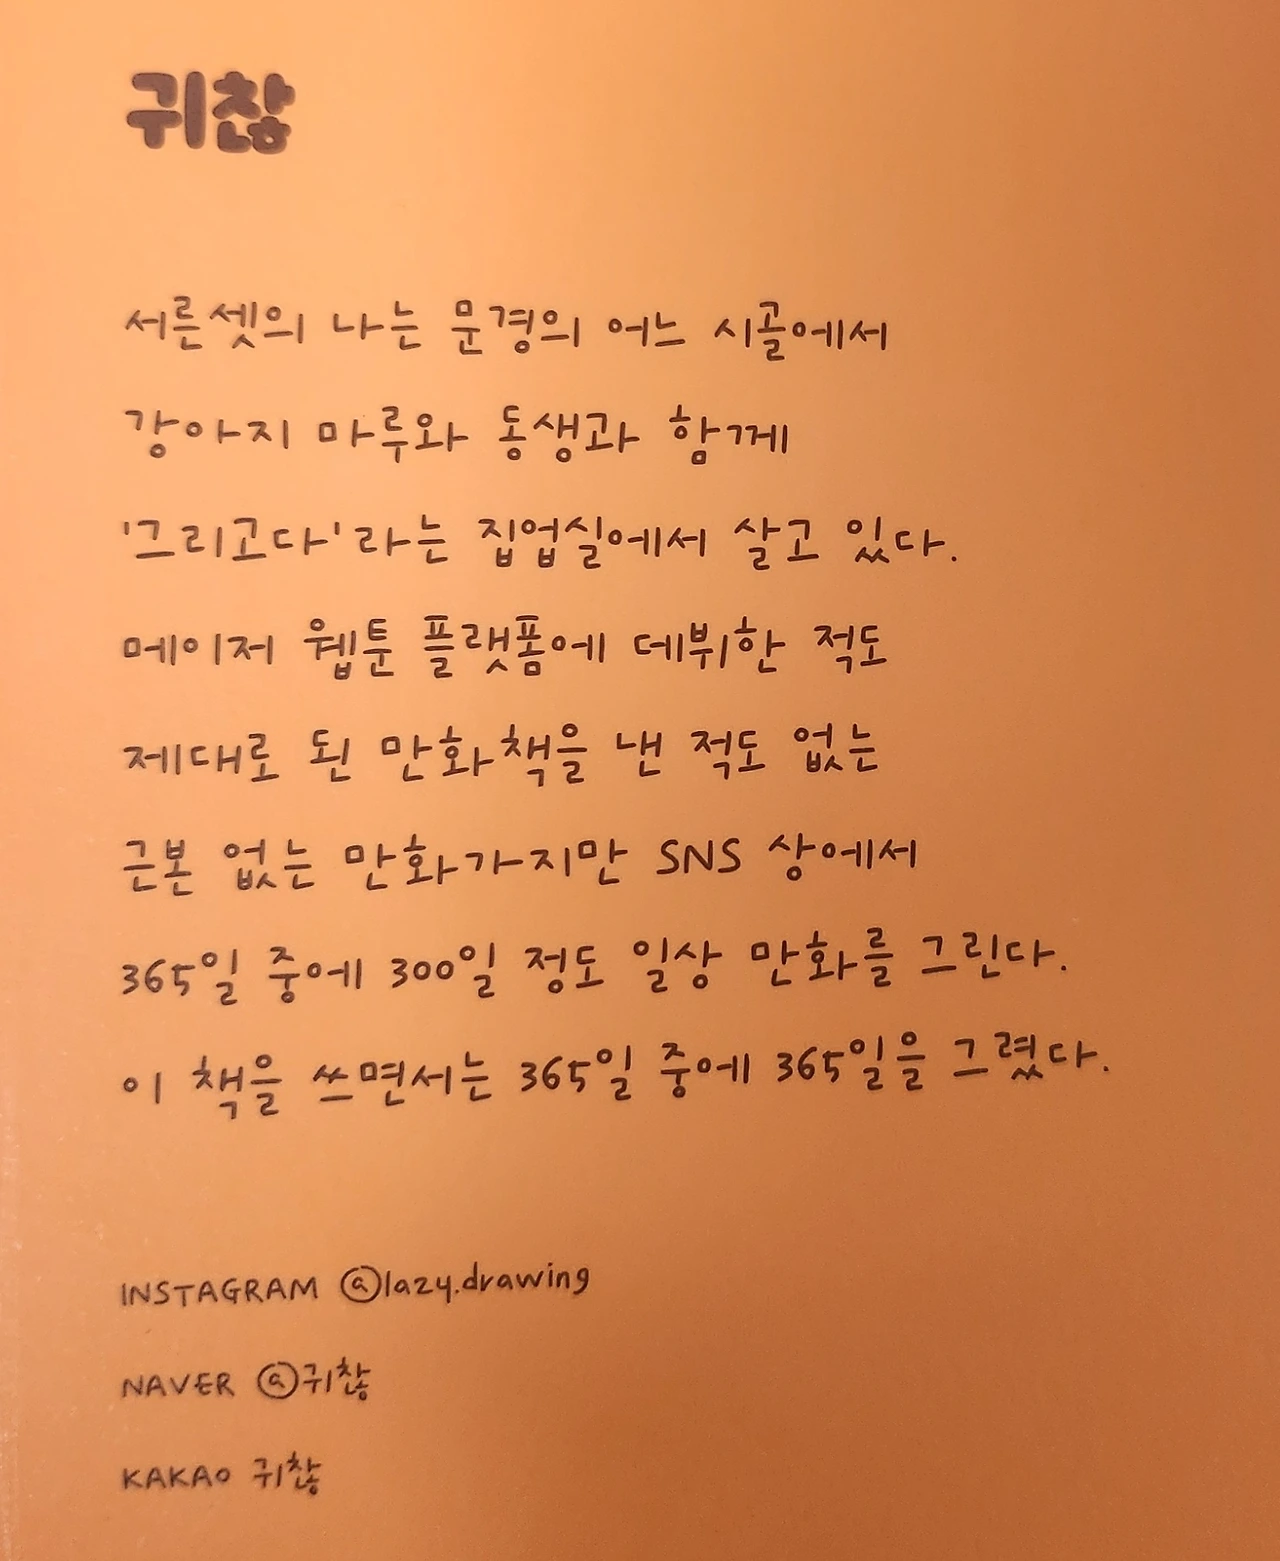 귀찮
서른셋의 나는 문경의 어느 시골에서
강아지 마루와 동생과 함께
'그리고다'라는 집업실에서 살고 있다.
메이저 웹툰 플랫폼에 데뷔한 적도
제대로 된 만화책을 낸 적도 없는
근본 없는 만화가지만 SNS 상에서
365일 중에 300일 정도 일상 만화를 그린다.
이 책을 쓰면서는 365일 중에 365일을 그렸다.
INSTAGRAM @lazy.drawing
NAVER @귀찮
KAKAO 귀찮